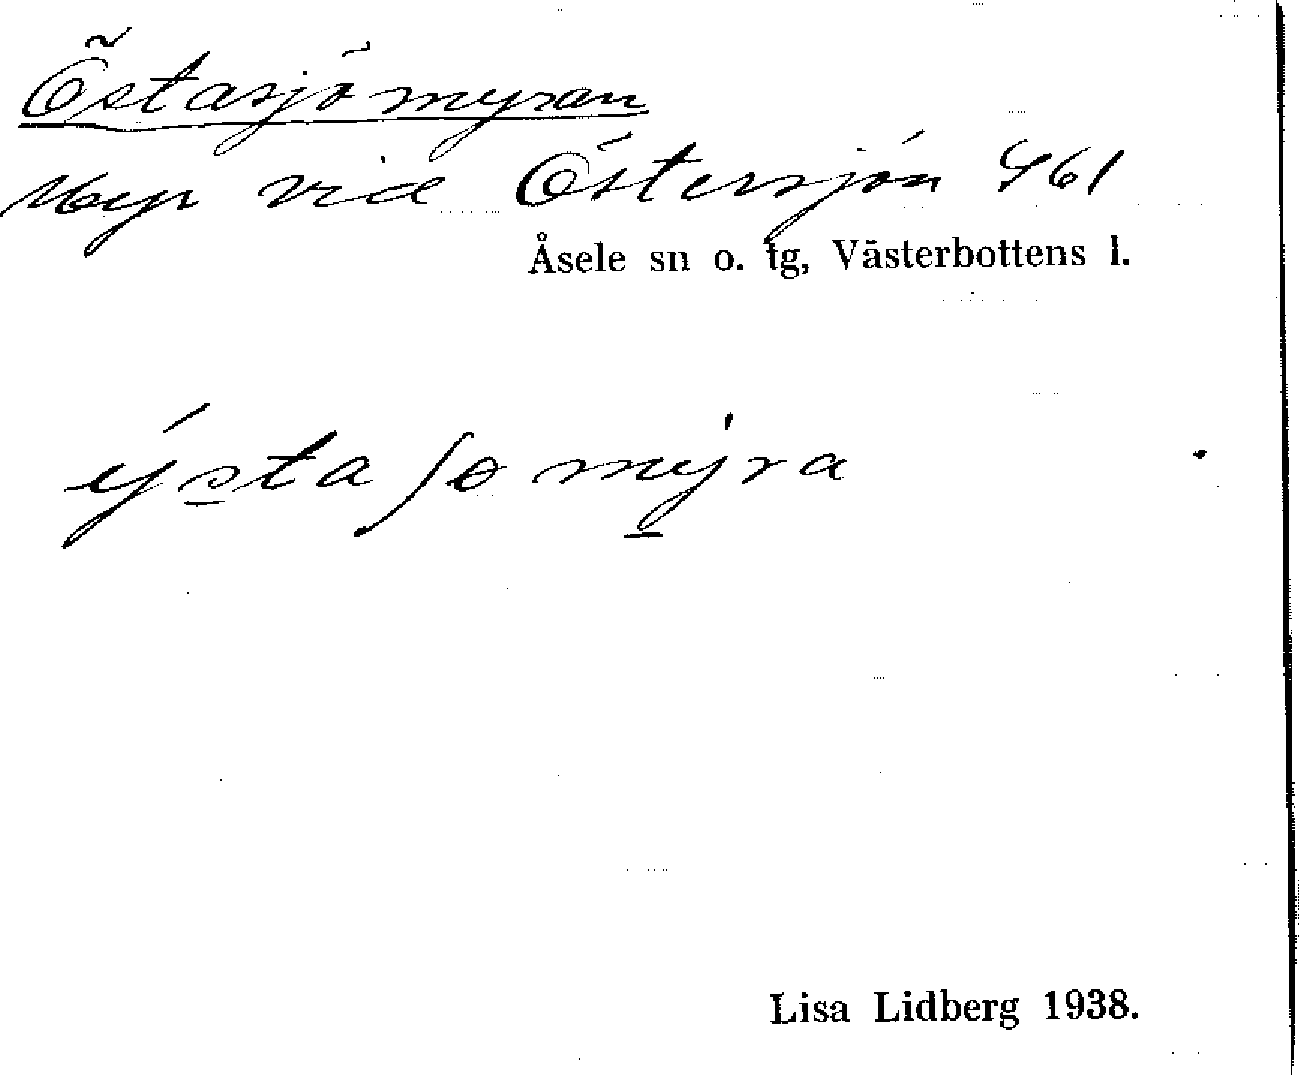 Östasjömyran
Myr vid Östersjön 461
Åsele sn o. tg, Västerbottens l.
ýs̱ta ʃɵ my̱̍ra
Lisa Lidberg 1938.